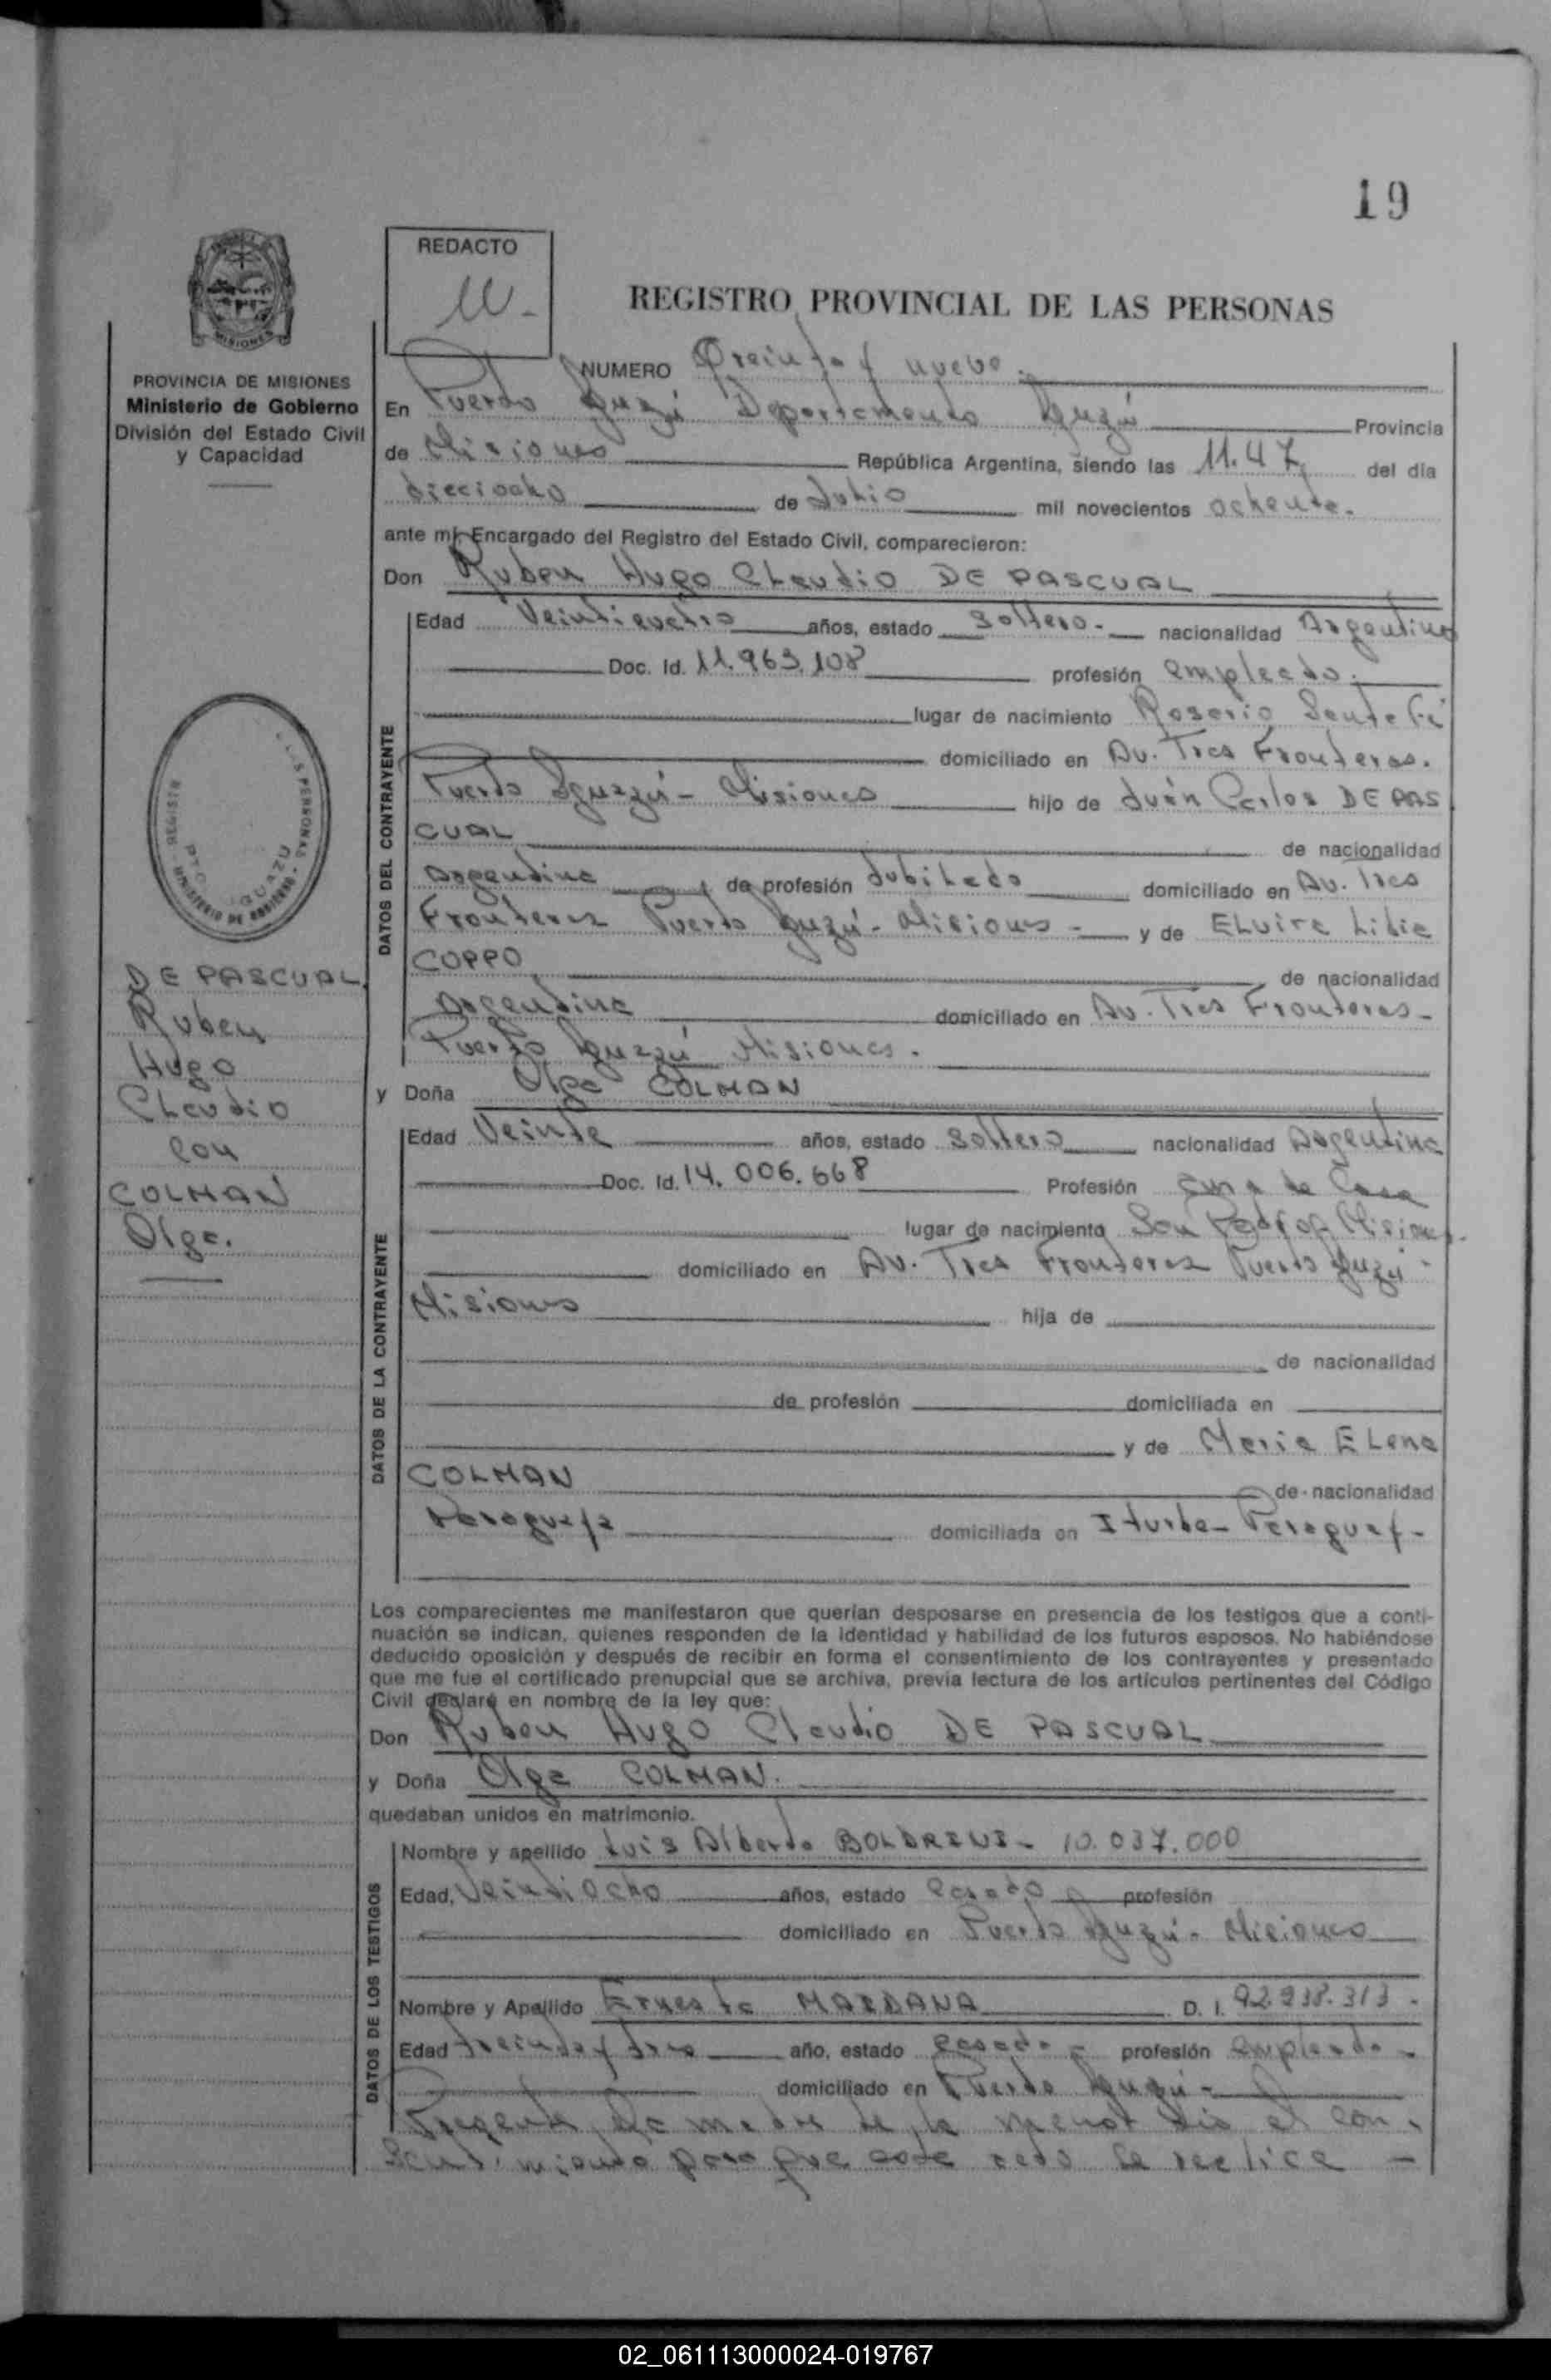 19
REDACTO
REGISTRO PROVINCIAL DE LAS PERSONAS
MISIONES
PROVINCIA DE MISIONES
Ministerio de Gobierno
División del Estado Civil
y Capacidad
NUMERO Treinta y nueve.
En Puerto Iguazú Departamento Iguazú Provincia
de Misiones República Argentina, siendo las 11.47 del día
dieciocho de Julio mil novecientos ochenta.
ante mí, Encargado del Registro del Estado Civil, comparecieron:
Don Ruben Hugo Claudio DE PASCUAL
DATOS DEL CONTRAYENTE
Edad Veinticuatro años, estado Soltero- nacionalidad Argentino
Doc. Id. 11.963.108 profesión empleado.
lugar de nacimiento Rosario Santa Fé
domiciliado en Av. Tres Fronteras.
Puerto Iguazú - Misiones hijo de Juán Carlos DE PAS
CUAL de nacionalidad
Argentina y de profesión Jubilado domiciliado en Av. Tres
Fronteras Puerto Iguazú - Misiones - y de ELvira Lidia
COPPO de nacionalidad
Argentina domiciliado en Av. Tres Fronteras -
Puerto Iguazú Misiones.
y Doña Olga COLMAN
DATOS DE LA CONTRAYENTE
Edad Veinte años, estado Soltera nacionalidad Argentina
Doc. Id. 14.006.668 Profesión ama de Casa
lugar de nacimiento San Pedro Misiones.
domiciliado en Av. Tres Fronteras Puerto Iguazú -
Misiones hija de
de nacionalidad
de profesión domiciliada en
y de Maria ELena
COLMAN de nacionalidad
Paraguaya domiciliada en Iturbe - Paraguay -
Los comparecientes me manifestaron que querían desposarse en presencia de los testigos que a conti-
nuación se indican, quienes responden de la identidad y habilidad de los futuros esposos. No habiéndose
deducido oposición y después de recibir en forma el consentimiento de los contrayentes y presentado
que me fue el certificado prenupcial que se archiva, previa lectura de los artículos pertinentes del Código
Civil declaré en nombre de la ley que:
Don Ruben Hugo Claudio DE PASCUAL
y Doña Olga COLMAN.
quedaban unidos en matrimonio.
DATOS DE LOS TESTIGOS
Nombre y apellido Luis Alberto BOLDRINI - 10.037.000
Edad, Veintiocho años, estado casado profesión
domiciliado en Puerto Iguazú - Misiones
Nombre y Apellido Ernesto MAIDANA D. I. 92.938.313.
Edad treinta y tres año, estado casado - profesión empleado -
domiciliado en Puerto Iguazú -
Presente la madre de la menor dio el con-
sentimiento para que este acto se realice -
DE PASCUAL
Ruben
Hugo
Claudio
con
COLMAN
Olga.
02_061113000024-019767